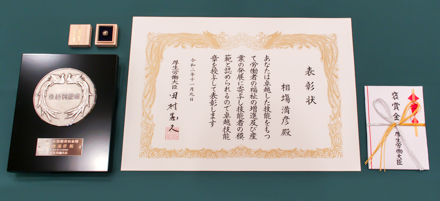 表彰状
相場満彦 殿
あなたは卓越した技能をもつ
て労働者の福祉の増進及び産
業の発展に寄与し技能者の模
範と認められるので卓越技能
章を授与して表彰します
令和二年十一月九日
厚生労働大臣 田村憲久
褒賞金
厚生労働大臣